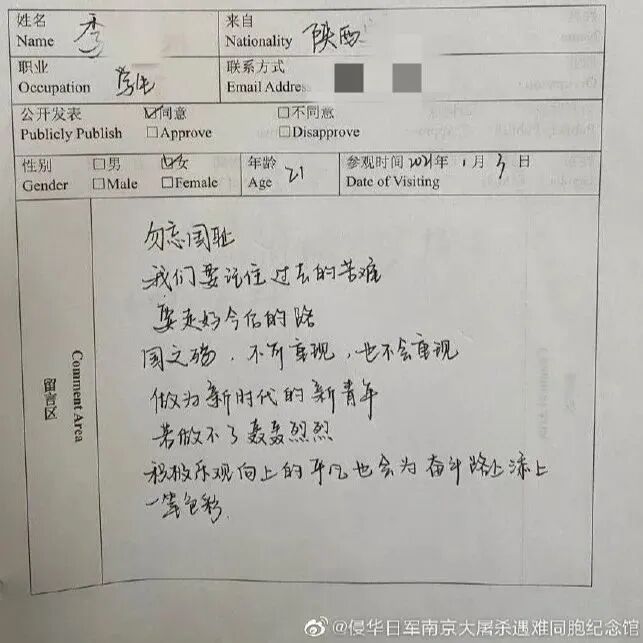 姓名 李 来自 陕西
Name Nationality
职业 学生 联系方式
Occupation Email Address
公开发表 ☑同意 □不同意
Publicly Publish □Approve □Disapprove
性别 □男 ☑女 年龄 21 参观时间 2021年 1月 3日
Gender □Male □Female Age Date of Visiting
留言区 Comment Area
勿忘国耻
我们要记住过去的苦难
要走好今后的路
国之殇,不可重现,也不会重现
做为新时代的新青年
若做不了轰轰烈烈
积极乐观向上的平凡也会为奋斗路上添上
一笔色彩.
@侵华日军南京大屠杀遇难同胞纪念馆